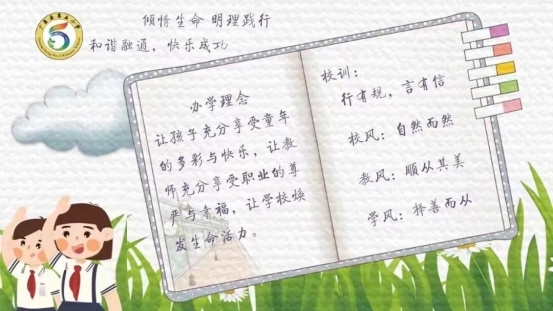 倾情生命 明理践行
和谐融通，快乐成功
办学理念
让孩子充分享受童年
的多彩与快乐，让教
师充分享受职业的尊
严与幸福，让学校焕
发生命活力。
校训：
行有规，言有信
校风：自然而然
教风：顺从其美
学风：择善而从